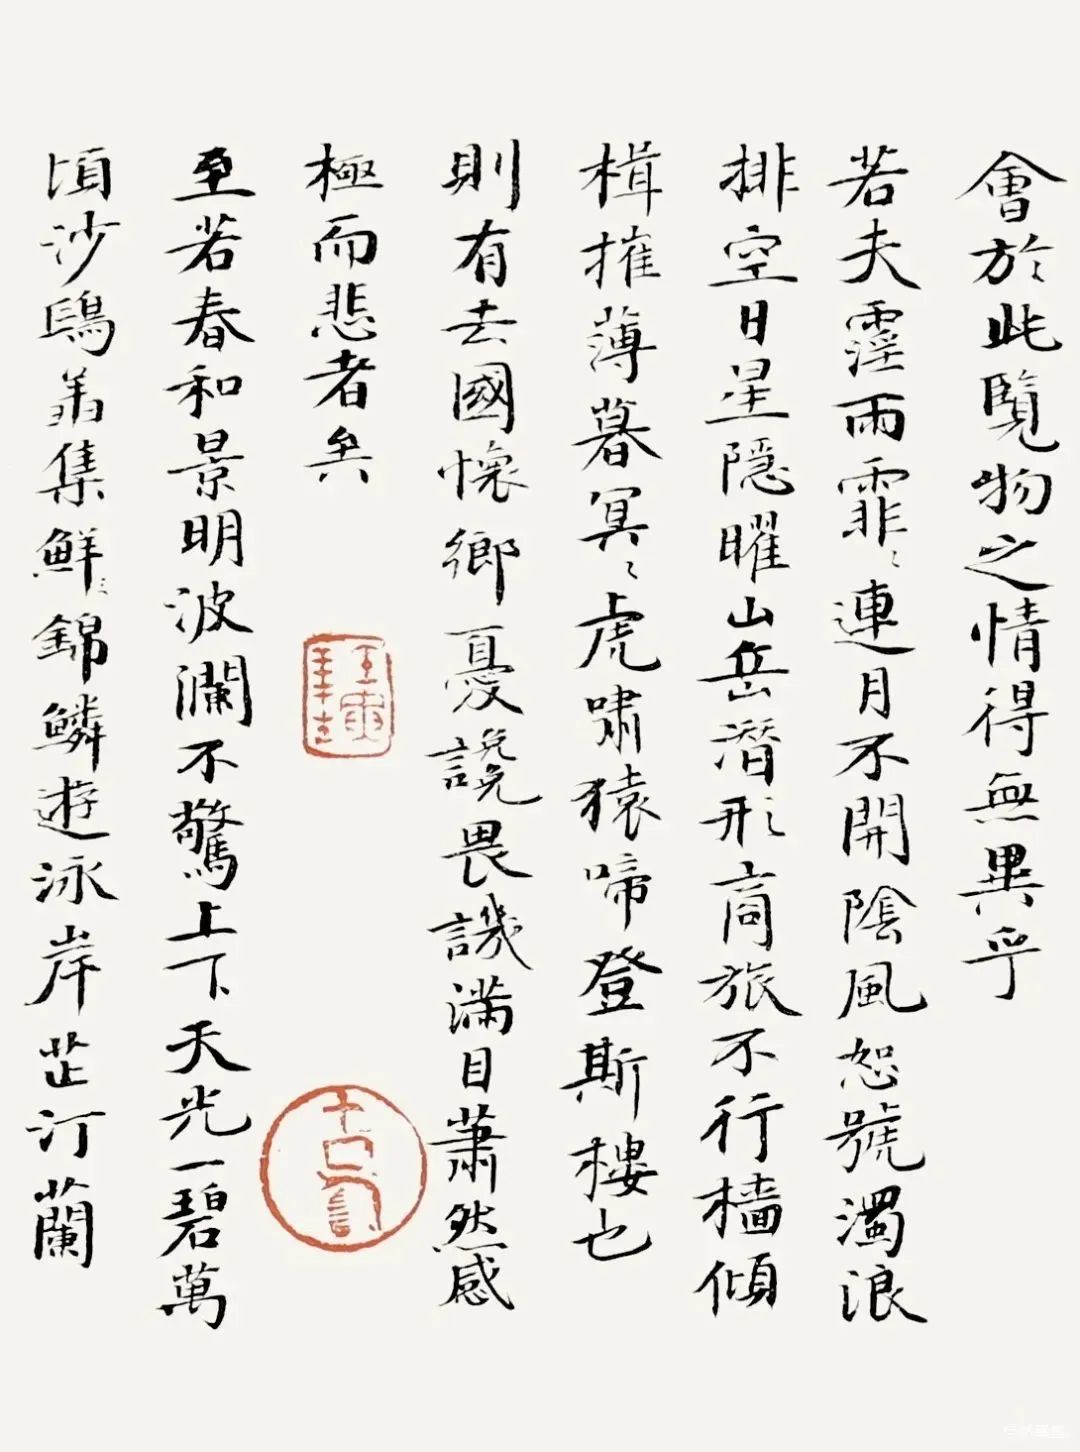 會於此覽物之情得無異乎
若夫霪雨霏〻連月不開陰風怒號濁浪
排空日星隱曜山岳潛形商旅不行檣傾
楫摧薄暮冥〻虎嘯猿啼登斯樓也
則有去國懷鄉憂讒畏譏滿目蕭然感
極而悲者矣
至若春和景明波瀾不驚上下天光一碧萬
頃沙鷗翔集鮮錦鱗遊泳岸芷汀蘭